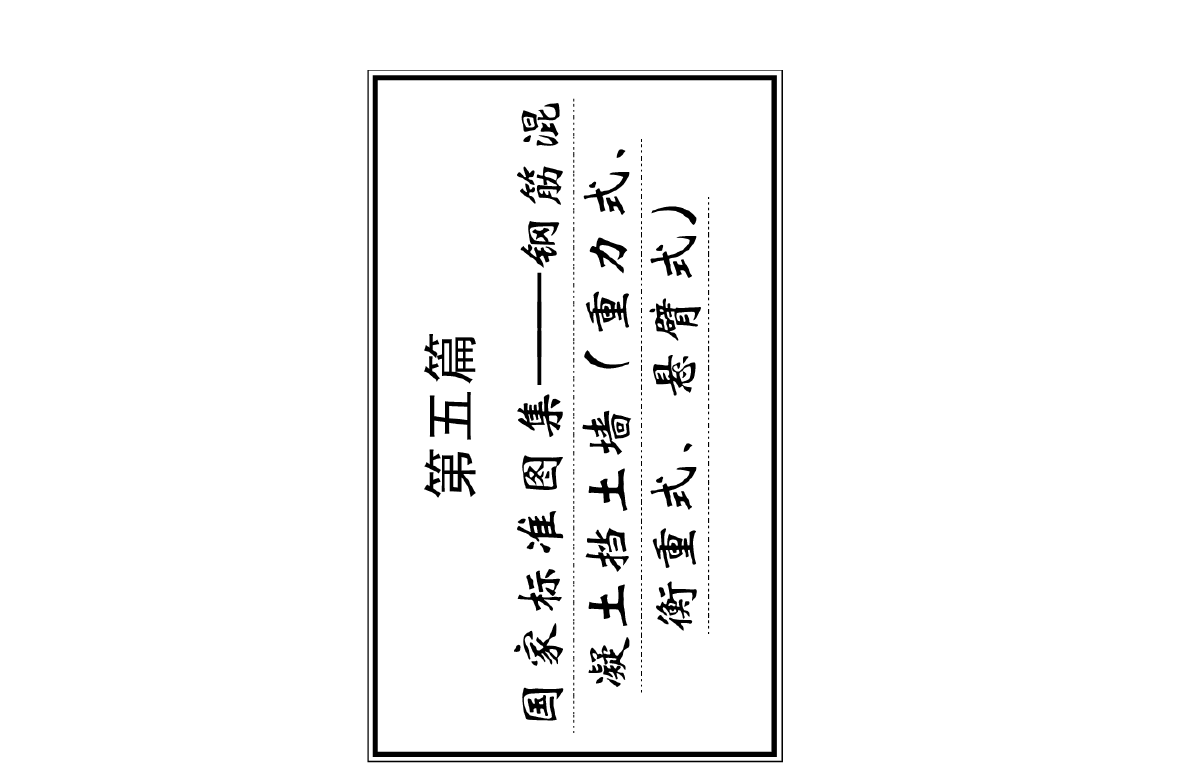 第五篇
国家标准图集——钢筋混
凝土挡土墙（重力式、
衡重式、悬臂式）